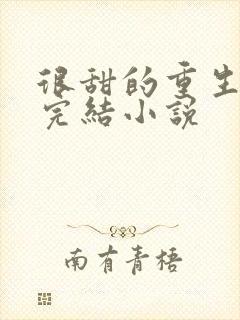 很甜的重生
完結小説
南有青梧